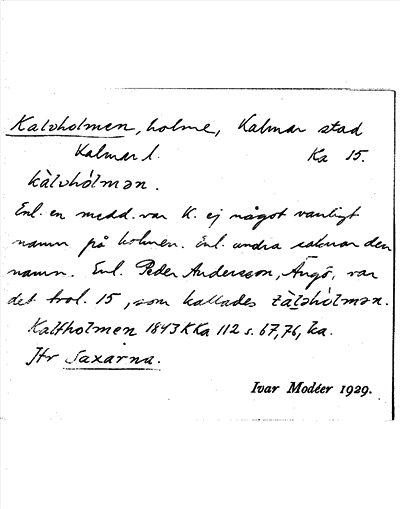 Kalvholmen, holme, Kalmar stad
Kalmar l. Ka 15.
kàlvhòlmən.
Enl. en medd. var K. ej något vanligt
namn på holmen. Enl. andra saknar den
namn. Enl. Peder Andersson, Ängö, var
det trol. 15, som kallades
Kalfholmen 1843 K Ka 112 s. 67, 76, ka.
Jfr Saxarna.
Ivar Modéer 1929.